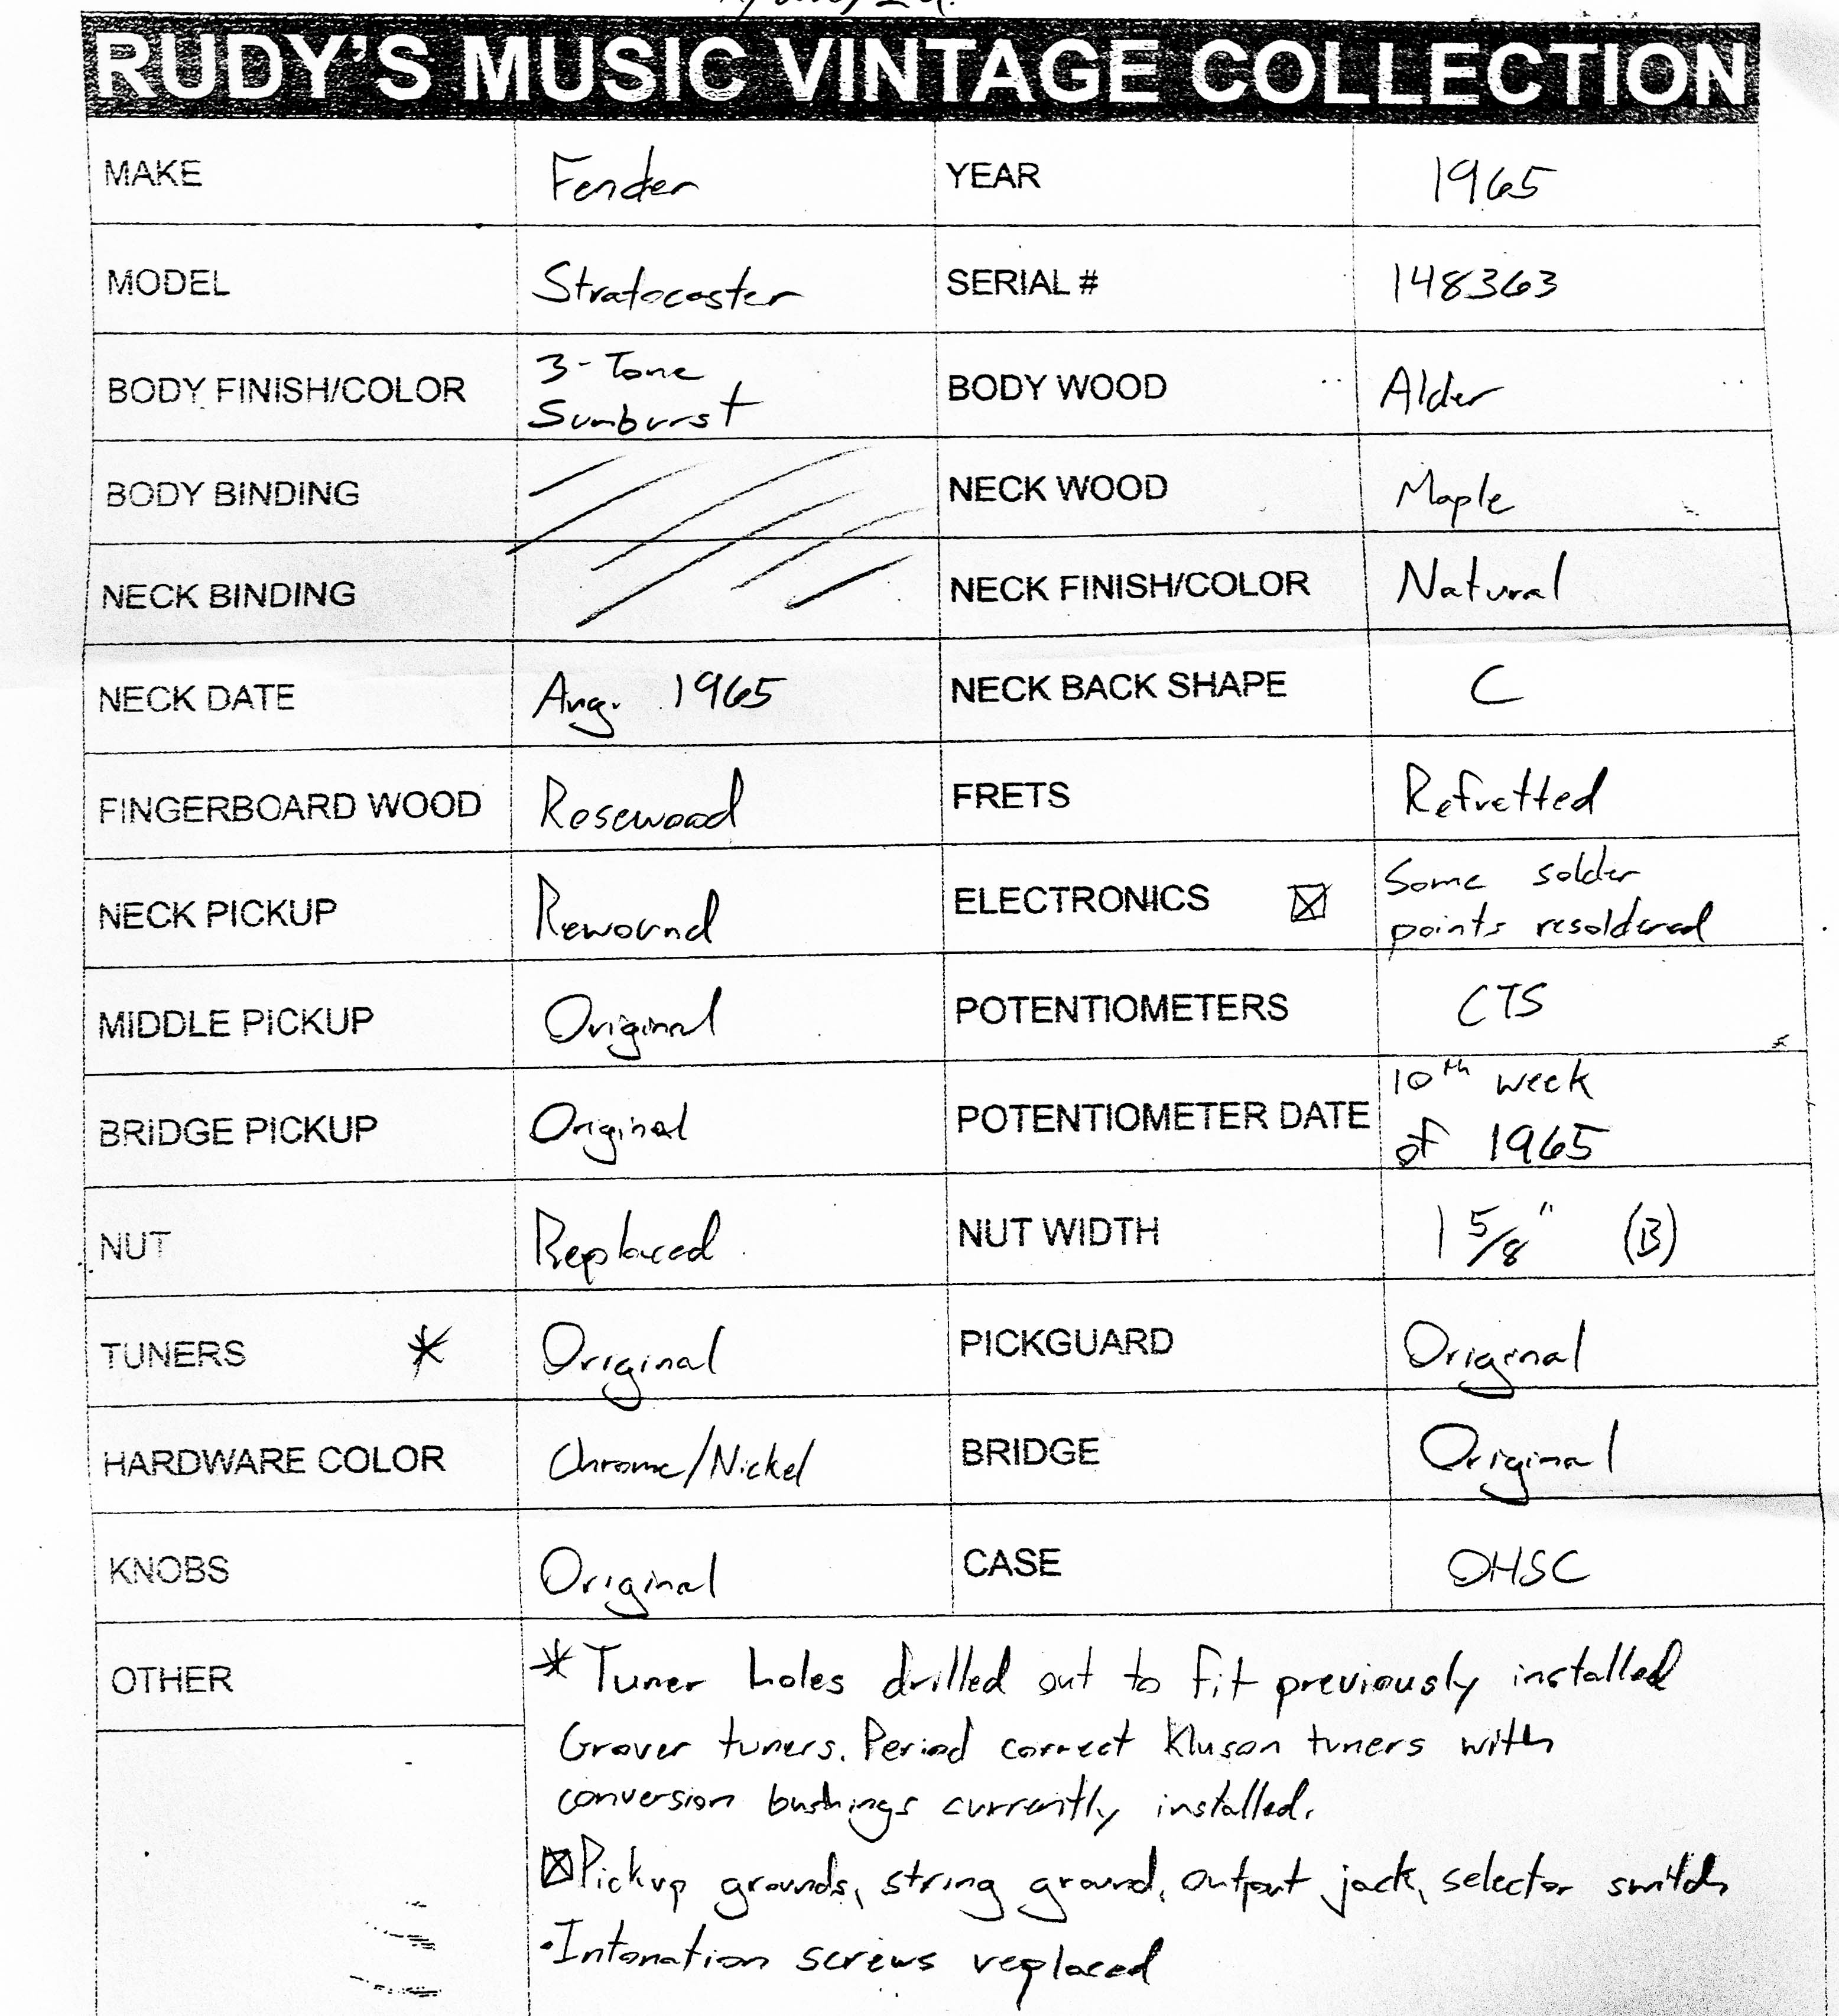 RUDY'S MUSIC VINTAGE COLLECTION
MAKE Fender YEAR 1965
MODEL Stratocaster SERIAL # 148363
BODY FINISH/COLOR 3-Tone
Sunburst BODY WOOD Alder
BODY BINDING NECK WOOD Maple
NECK BINDING NECK FINISH/COLOR Natural
NECK DATE Aug. 1965 NECK BACK SHAPE C
FINGERBOARD WOOD Rosewood FRETS Refretted
NECK PICKUP Rewound ELECTRONICS ☒ Some solder
points resoldered
MIDDLE PICKUP Original POTENTIOMETERS CTS
BRIDGE PICKUP Original POTENTIOMETER DATE 10th week
of 1965
NUT Replaced NUT WIDTH 1 5/8" (B)
TUNERS * Original PICKGUARD Original
HARDWARE COLOR Chrome/Nickel BRIDGE Original
KNOBS Original CASE OHSC
OTHER * Tuner holes drilled out to fit previously installed
Grover tuners. Period correct Kluson tuners with
conversion bushings currently installed.
☒ Pickup grounds, string ground, output jack, selector switch
• Intonation screws replaced